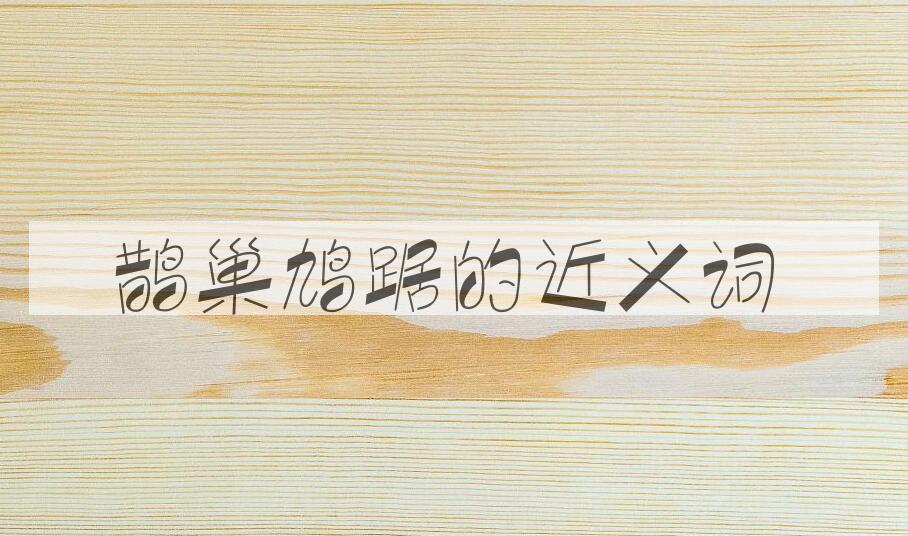 鹊巢鸠踞的近义词